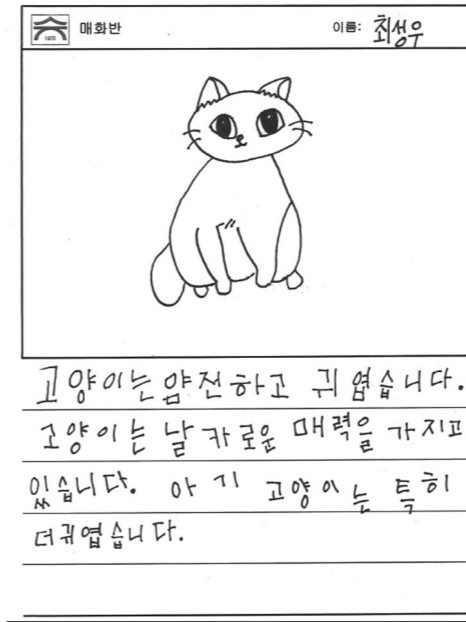 매화반
이름: 최성우
고양이는 얌전하고 귀엽습니다.
고양이는 날카로운 매력을 가지고
있습니다. 아기 고양이는 특히
더귀엽습니다.